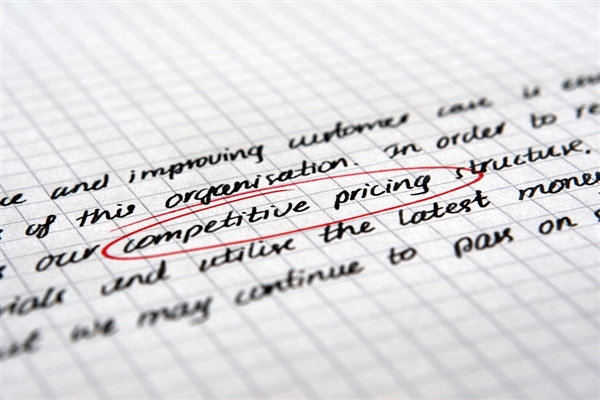 and improving customer care is
of this organisation. In order to
our competitive pricing structure,
and utilise the latest
we may continue to pass on